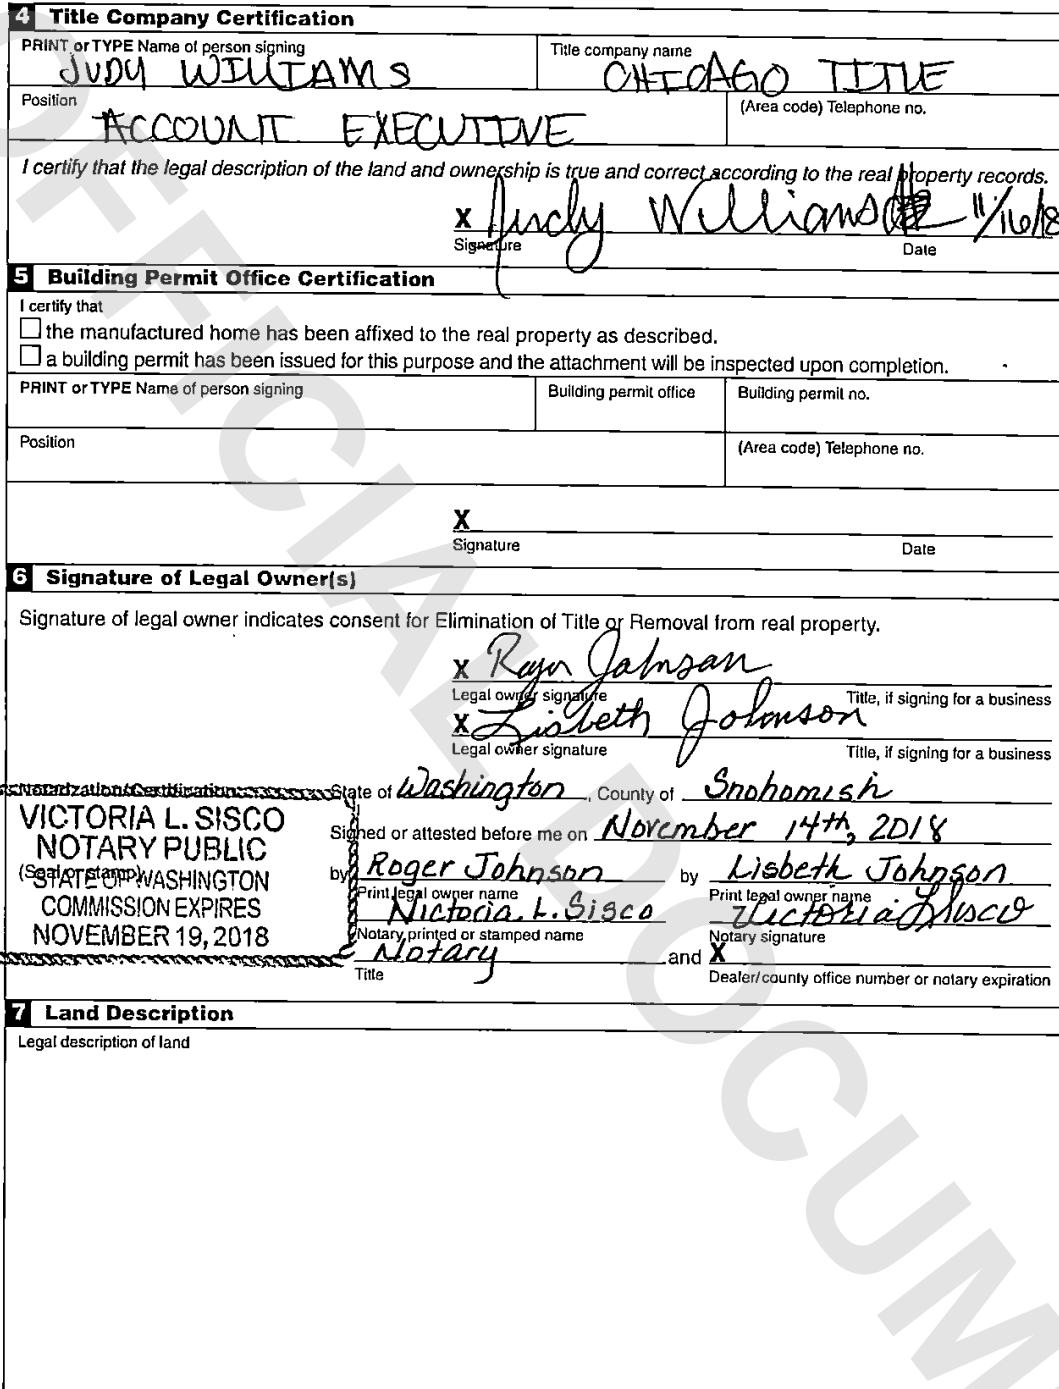 4 Title Company Certification
PRINT or TYPE Name of person signing
JUDY WILLIAMS
Title company name
CHICAGO TITLE
Position
ACCOUNT EXECUTIVE
(Area code) Telephone no.
I certify that the legal description of the land and ownership is true and correct according to the real property records.
X Judy Williams 11/16/18
Signature Date
5 Building Permit Office Certification
I certify that
the manufactured home has been affixed to the real property as described.
a building permit has been issued for this purpose and the attachment will be inspected upon completion.
PRINT or TYPE Name of person signing
Building permit office
Building permit no.
Position
(Area code) Telephone no.
X
Signature Date
6 Signature of Legal Owner(s)
Signature of legal owner indicates consent for Elimination of Title or Removal from real property.
X Roger Johnson
Legal owner signature Title, if signing for a business
X Lisbeth Johnson
Legal owner signature Title, if signing for a business
Notarization/Certification
State of Washington, County of Snohomish
VICTORIA L. SISCO
NOTARY PUBLIC
(Seal or stamp)
STATE OF WASHINGTON
COMMISSION EXPIRES
NOVEMBER 19, 2018
Signed or attested before me on November 14th, 2018
by Roger Johnson by Lisbeth Johnson
Print legal owner name Print legal owner name
Victoria L. Sisco Victoria L Sisco
Notary printed or stamped name Notary signature
Notary and X
Title Dealer/county office number or notary expiration
7 Land Description
Legal description of land
OFFICIAL DOCUM